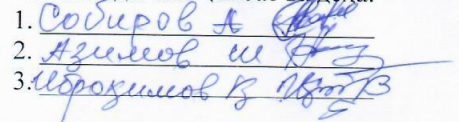 1. Собиров А
2. Азимов Ш
3. Иброхимов В